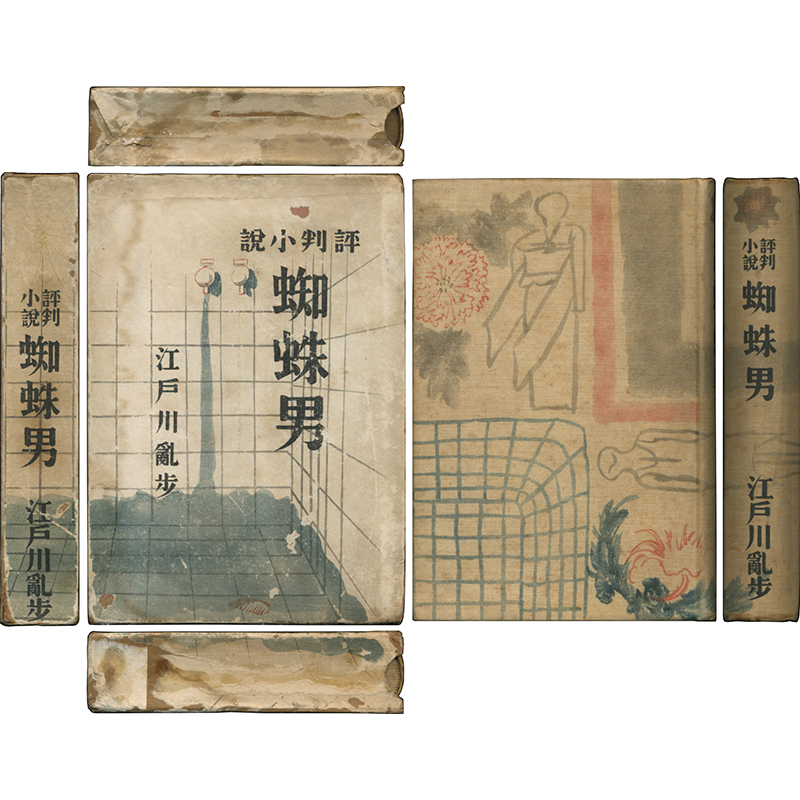 評判
小說
蜘蛛男
江戸川亂步
評判小說
蜘蛛男
江戸川亂步
評判
小說
蜘蛛男
江戸川亂步